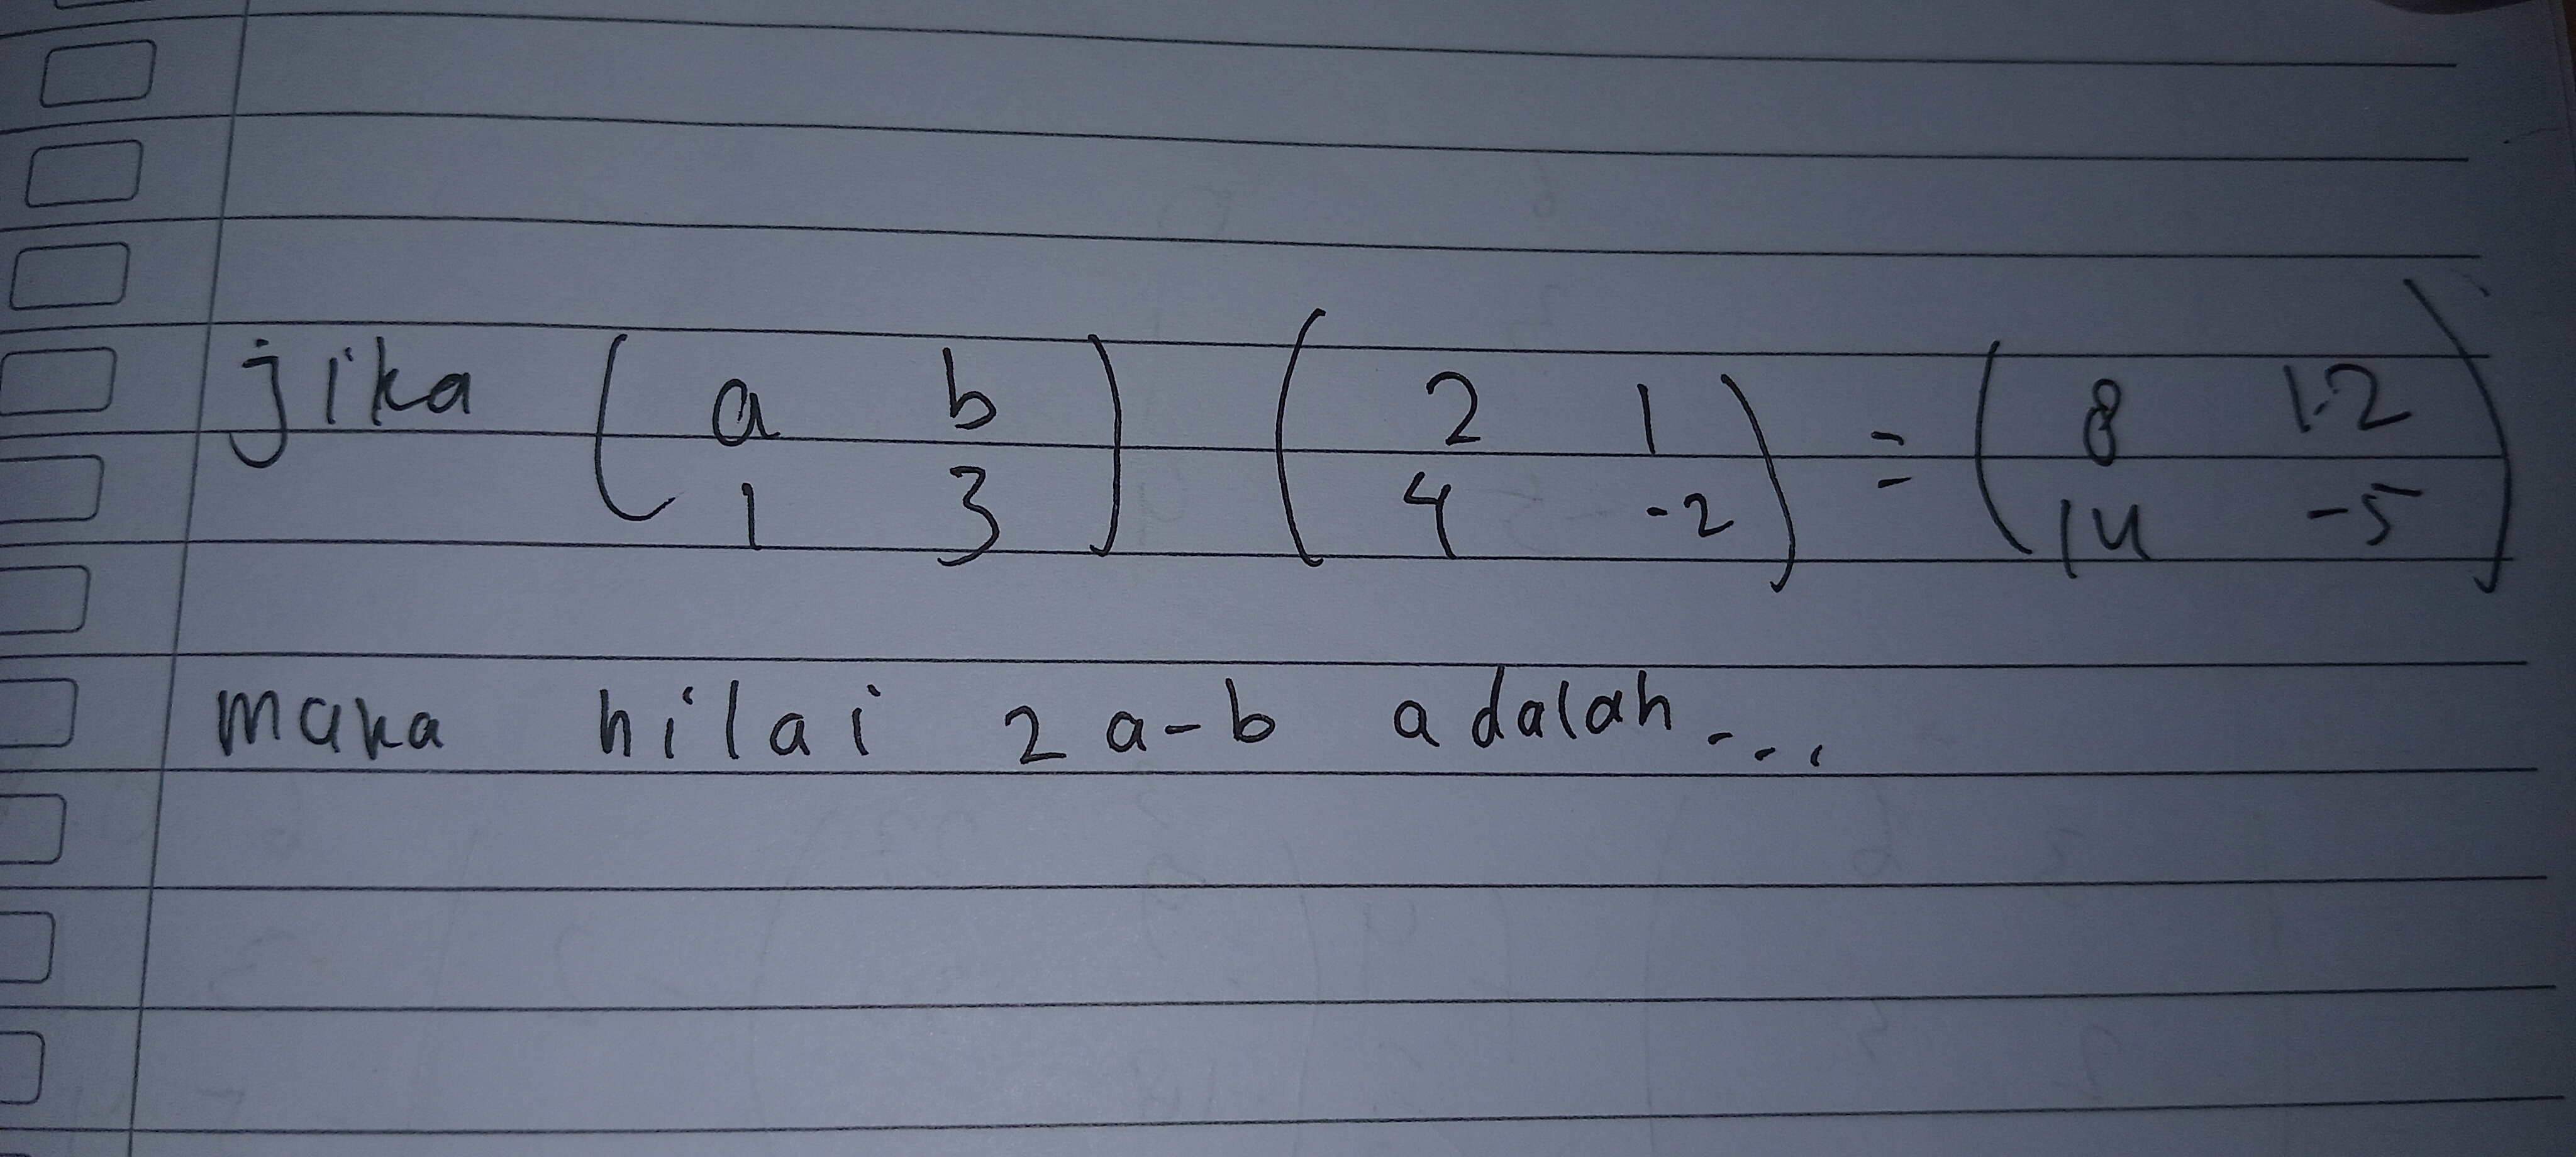 jika ( a b ) ( 2 1 ) = ( 8 12 )
1 3 4 -2 14 -5
maka nilai 2a-b adalah ...